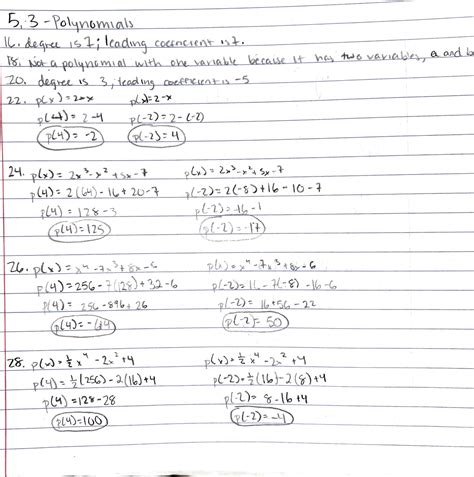 5.3 - Polynomials
16. degree is 7; leading coefficient is 7.
18. Not a polynomial with one variable because it has two variables, a and b
20. degree is 3, leading coefficient is -5
22. p(x) = 2-x p(x) = 2-x
p(4) = 2-4 p(-2) = 2-(-2)
p(4) = -2 p(-2) = 4
24. p(x) = 2x³-x²+5x-7 p(x) = 2x³-x²+5x-7
p(4) = 2(64)-16+20-7 p(-2) = 2(-8)+16-10-7
p(4) = 128-3 p(-2) = -16-1
p(4) = 125 p(-2) = -17
26. p(x) = x⁴-7x³+8x-6 p(x) = x⁴-7x³+8x-6
p(4) = 256-7(128)+32-6 p(-2) = 16-7(-8)-16-6
p(4) = 256-896+26 p(-2) = 16+56-22
p(-2) = 50
28. p(x) = ½x⁴-2x²+4 p(x) = ½x⁴-2x²+4
p(4) = ½(256)-2(16)+4 p(-2) = ½(16)-2(8)+4
p(4) = 128-28 p(-2) = 8-16+4
p(4) = 100 p(-2) = -4